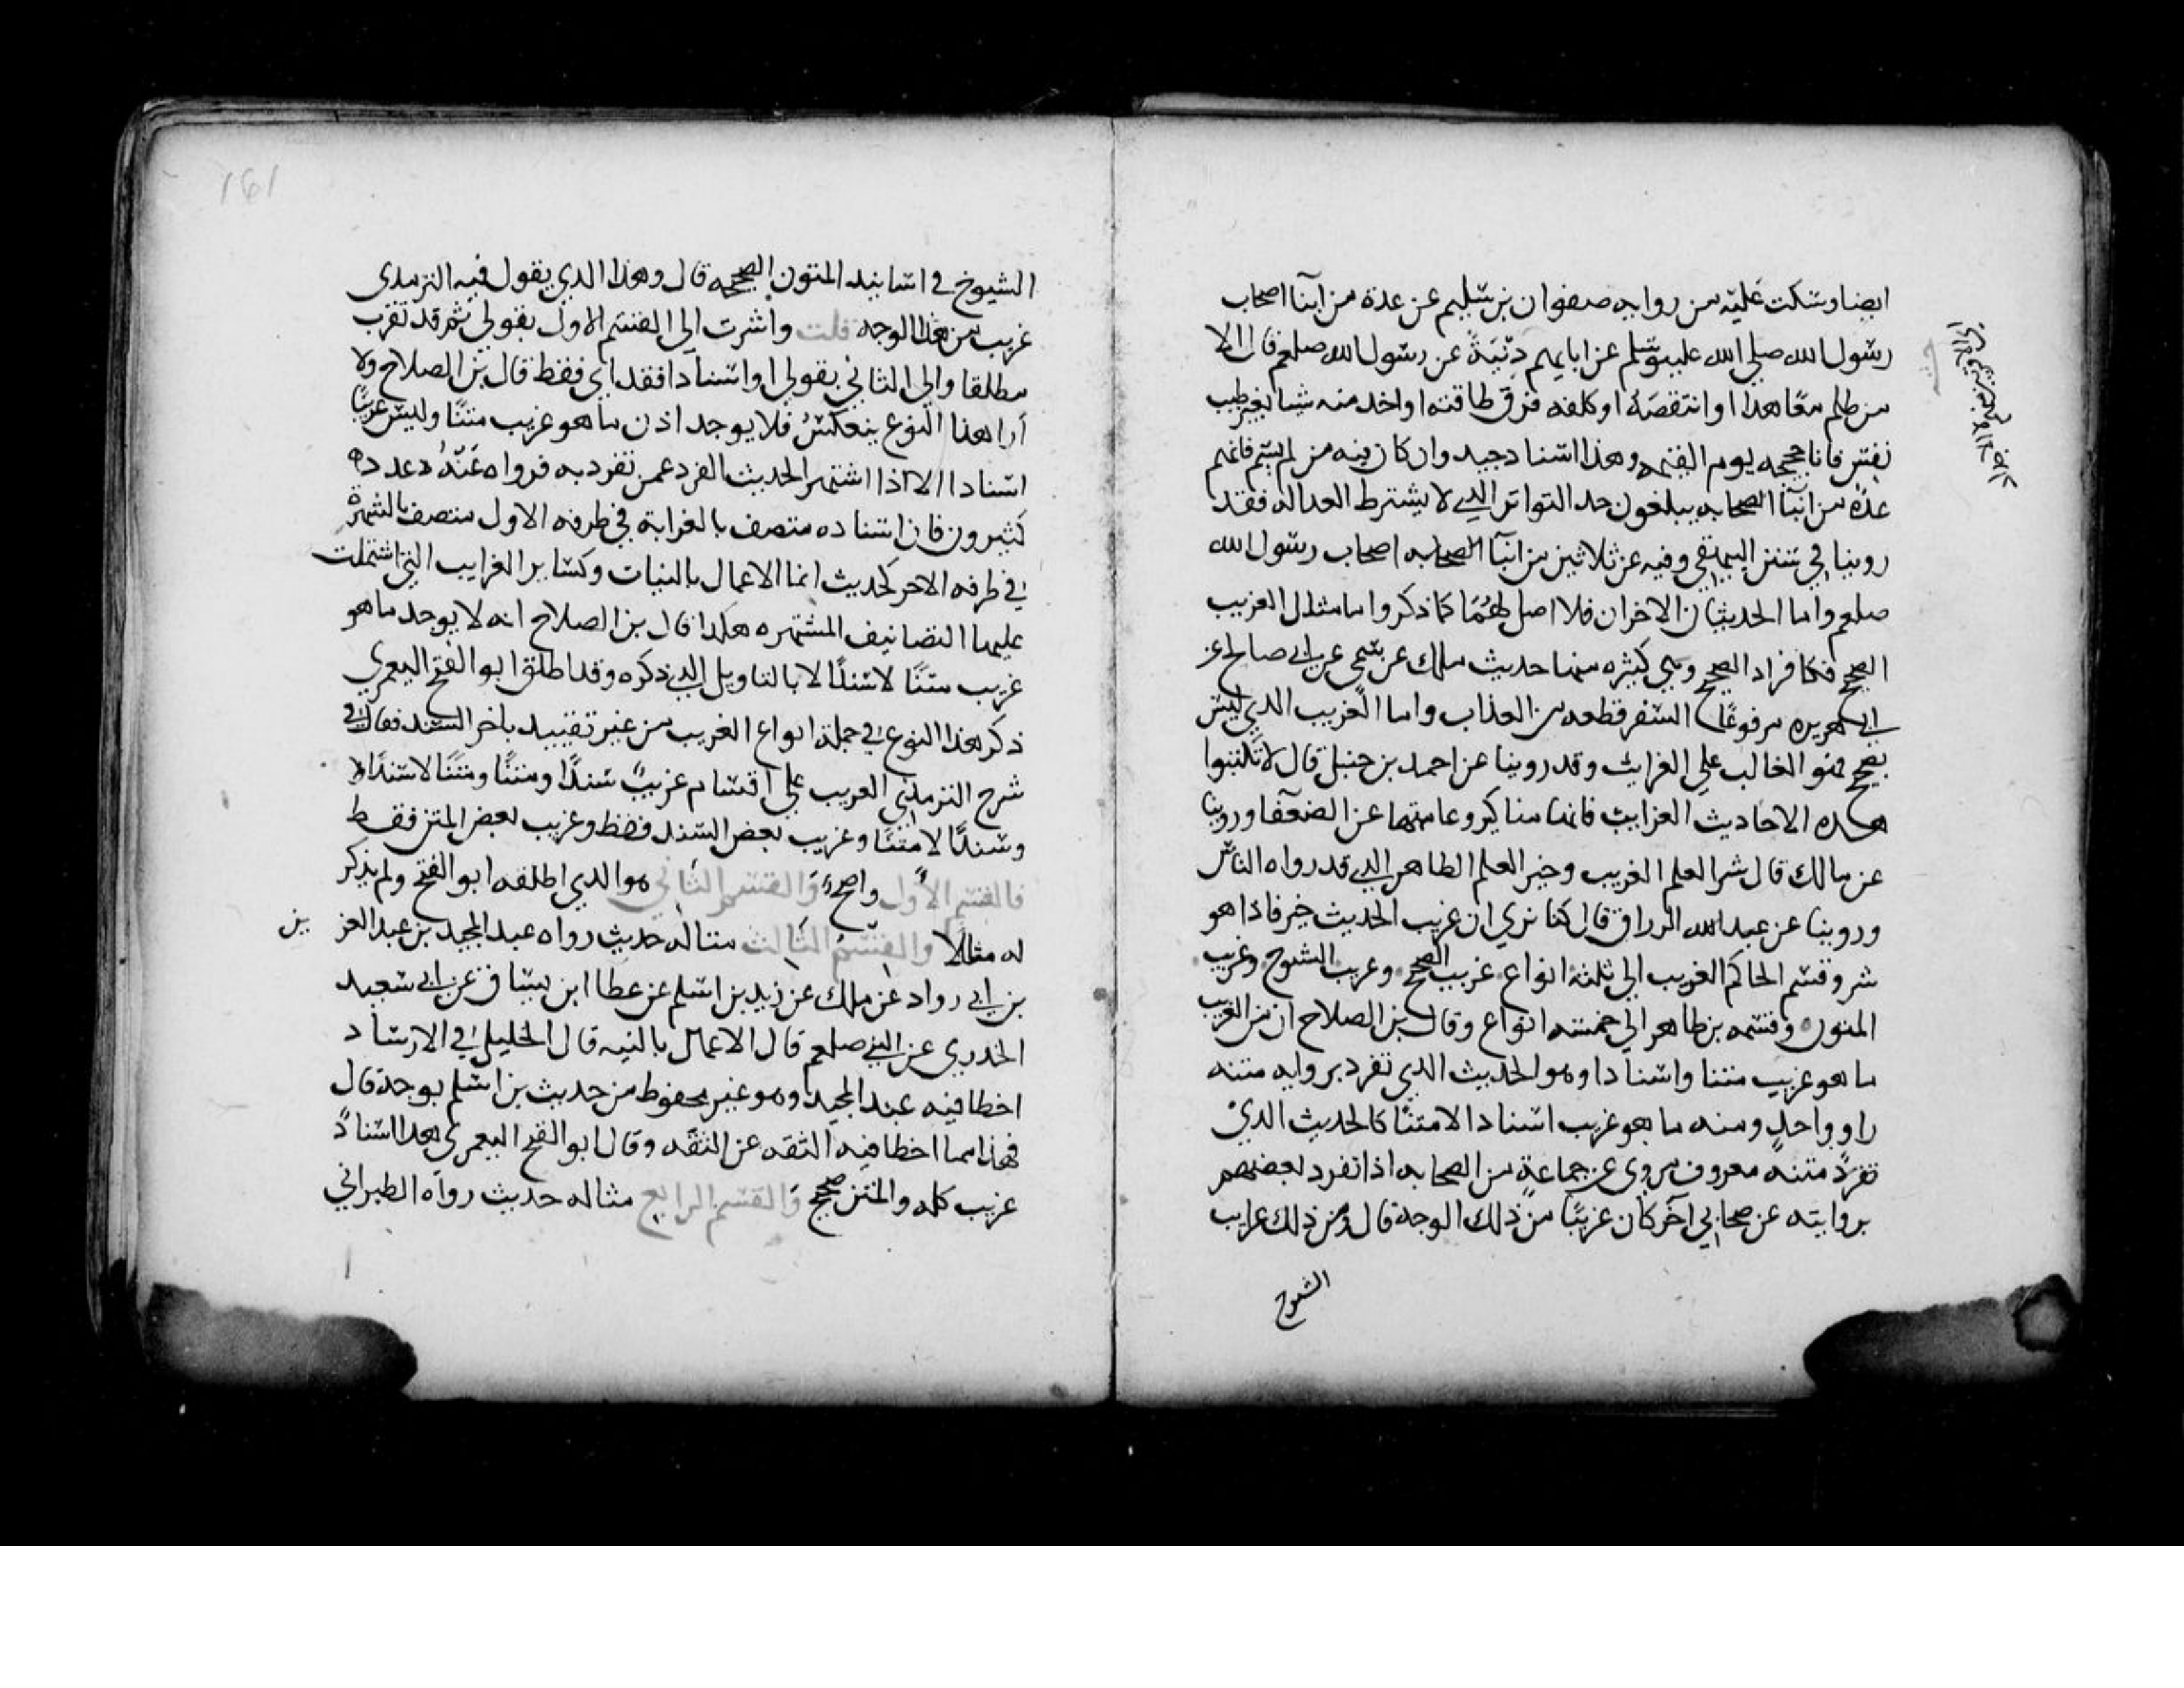 ايضا وسكت عليه من روايه صفوان بن سليم عن عدة من ابنآ اصحاب
رسول الله صلي الله عليه وسلم عن ابايهم دِنْيَةً عن رسول الله صلعم قال الا
من ظلم معاهدا او انتقصَهُ او كلفه فوق طاقته او اخد منه شيا بغير طيب
نفس فانا حجيجه يوم القيمه وهدا اسناد جيد وان كان فيه من لم يسم فانهم
عدة من ابنآ الصحابه يبلغون حد التواتر الدي لا يشترط العداله فقد
روينا في سنن البيهقي وفيه عن ثلاثين من ابنآ الصحابه اصحاب رسول الله
صلعم واما الحديثان الاخران فلا اصل لهُمَا كما ذكر واما مثال الغريب
الصحيح فكافراد الصحيح وهي كثيره منها حديث ملك عن سمي عن ابي صالح عن
ابي هريره مرفوعًا السفر قطعه من العذاب واما الغريب الدي ليس
بصحيح فهو الغالب علي الغرايب وقد روينا عن احمد بن حنبل قال لا تكتبوا
هده الاحاديث الغرايب فانها مناكير وعامتها عن الضعفا وروينا
عن مالك قال شر العلم الغريب وخير العلم الظاهر الدي قد رواه الناس
وروينا عن عبد الله الرزاق قال كنا نري ان غريب الحديث خير فاذا هو
شر وقسم الحاكم الغريب الي ثلثه انواع غريب الصحيح وغريب الشيوخ وغريب
المتون وقسمه بن طاهر الي خمسه انواع وقال بن الصلاح ان من الغريب
ما هو غريب متنا واسنادا وهو الحديث الدي تفرد بروايه متنه
راو واحد ومنه ما هو غريب اسنادا لا متنًا كالحديث الدي
تفرد متنه معروف مروي عن جماعةٍ من الصحابه اذا تفرد بعضهم
بروايته عن صحابي آخر كان غريبًا من ذلك الوجه قال ومن ذلك غرايب
الشيوخ
الشيوخ في اسانيد المتون الصحيحه قال وهذا الدي يقول فيه الترمدي
غريب من هذا الوجه قلت واشرت الي القسم الاول بقولي ثم قد تغرب
مطلقا والي الثاني بقولي او اسنادا فقد اي فقط قال بن الصلاح ولا
أرا هذا النوع ينعكسُ فلا يوجد اذن ما هو غريب متنًا وليس غريبًا
اسنادا الا اذا اشتهر الحديث الفرد عمن تفرد به فرواه عَنْهُ عدد
كثيرون فان اسناده متصف بالغرابة في طرفه الاول متصف بالشهرة
في طرفه الاخر كحديث انما الاعمال بالنيات وكساير الغرايب التي اشتملت
عليها التصانيف المشتهره هكدا قال بن الصلاح انه لا يوجد ما هو
غريب متنًا لا سندًا الا بالتاويل الدي ذكره وقد اطلق ابو الفتح اليعمري
ذكر هذا النوع في جملة انواع الغريب من غير تقييد باخر السند فقال في
شرح الترمدي الغريب علي اقسام غريبٌ سندًا ومتنًا ومتنًا لا سندًا
وسندًا لا متنًا وغريب بعض السند فقط وغريب بعض المتن فقط
فالقسم الاول واضحٌ وَالقسم الثاني هو الدي اطلقه ابو الفتح ولم يذكر
له مثالا والقسمُ الثالث مثاله حديث رواه عبد المجيد بن عبد العزيز
بن ابي رواد عن ملك عن زيد بن اسلم عن عطا ابن يسار عن ابي سعيد
الخدري عن النبي صلعم قال الاعمال بالنيه قال الخليلي في الارشاد
اخطا فيه عبد المجيد وهو غير محفوظ من حديث بن اسلم بوجه قال
فهذا مما اخطا فيه الثقه عن الثقه وقال ابو الفتح اليعمري هدا اسنادٌ
غريب كله والمتن صحيح وَالقسم الرابع مثاله حديث رواه الطبراني
161